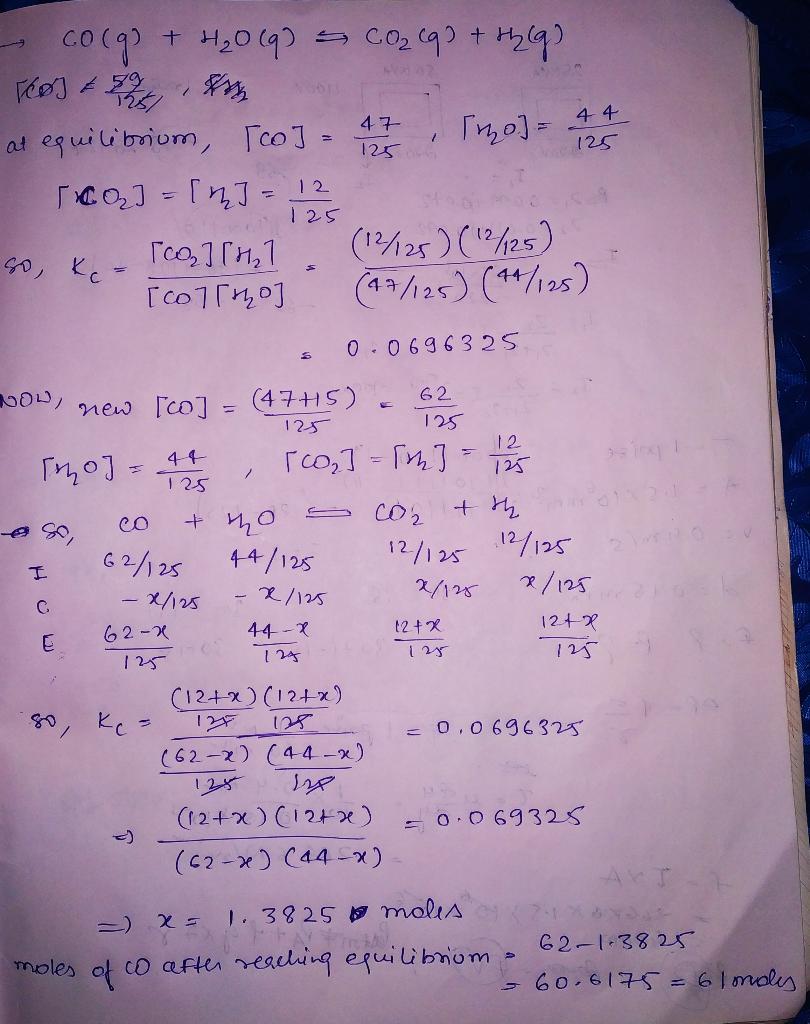 → CO(g) + H₂O(g) ⇌ CO₂(g) + H₂(g)
[CO] = 59/125,
at equilibrium, [CO] = 47/125, [H₂O] = 44/125
[CO₂] = [H₂] = 12/125
so, Kc = [CO₂][H₂]/[CO][H₂O] = (12/125)(12/125)/(47/125)(44/125)
= 0.0696325
Now, new [CO] = (47+15)/125 = 62/125
[H₂O] = 44/125, [CO₂] = [H₂] = 12/125
so, CO + H₂O ⇌ CO₂ + H₂
I 62/125 44/125 12/125 12/125
C - x/125 - x/125 x/125 x/125
E 62-x/125 44-x/125 12+x/125 12+x/125
so, Kc = (12+x)/125 (12+x)/125 / (62-x)/125 (44-x)/125 = 0.0696325
⇒ (12+x)(12+x)/(62-x)(44-x) = 0.069325
⇒ x = 1.3825 moles
moles of CO after reaching equilibrium = 62-1.3825
= 60.6175 = 61moles